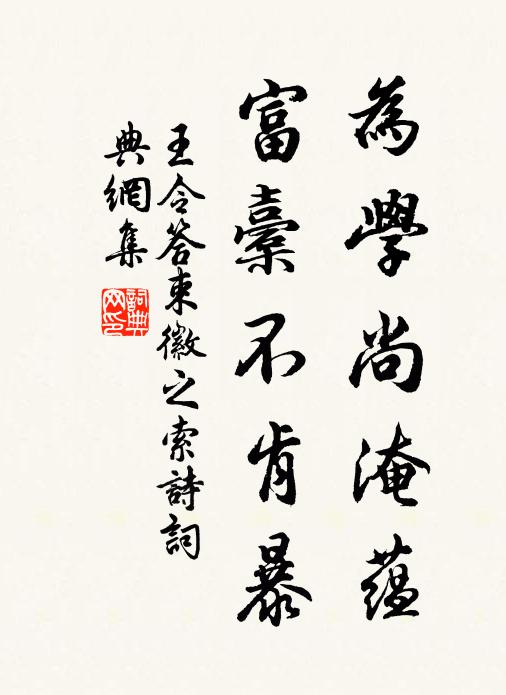 為學尚淹蘊
富橐不肯暴
王令答束徽之索詩詞
典網集
詞典網印